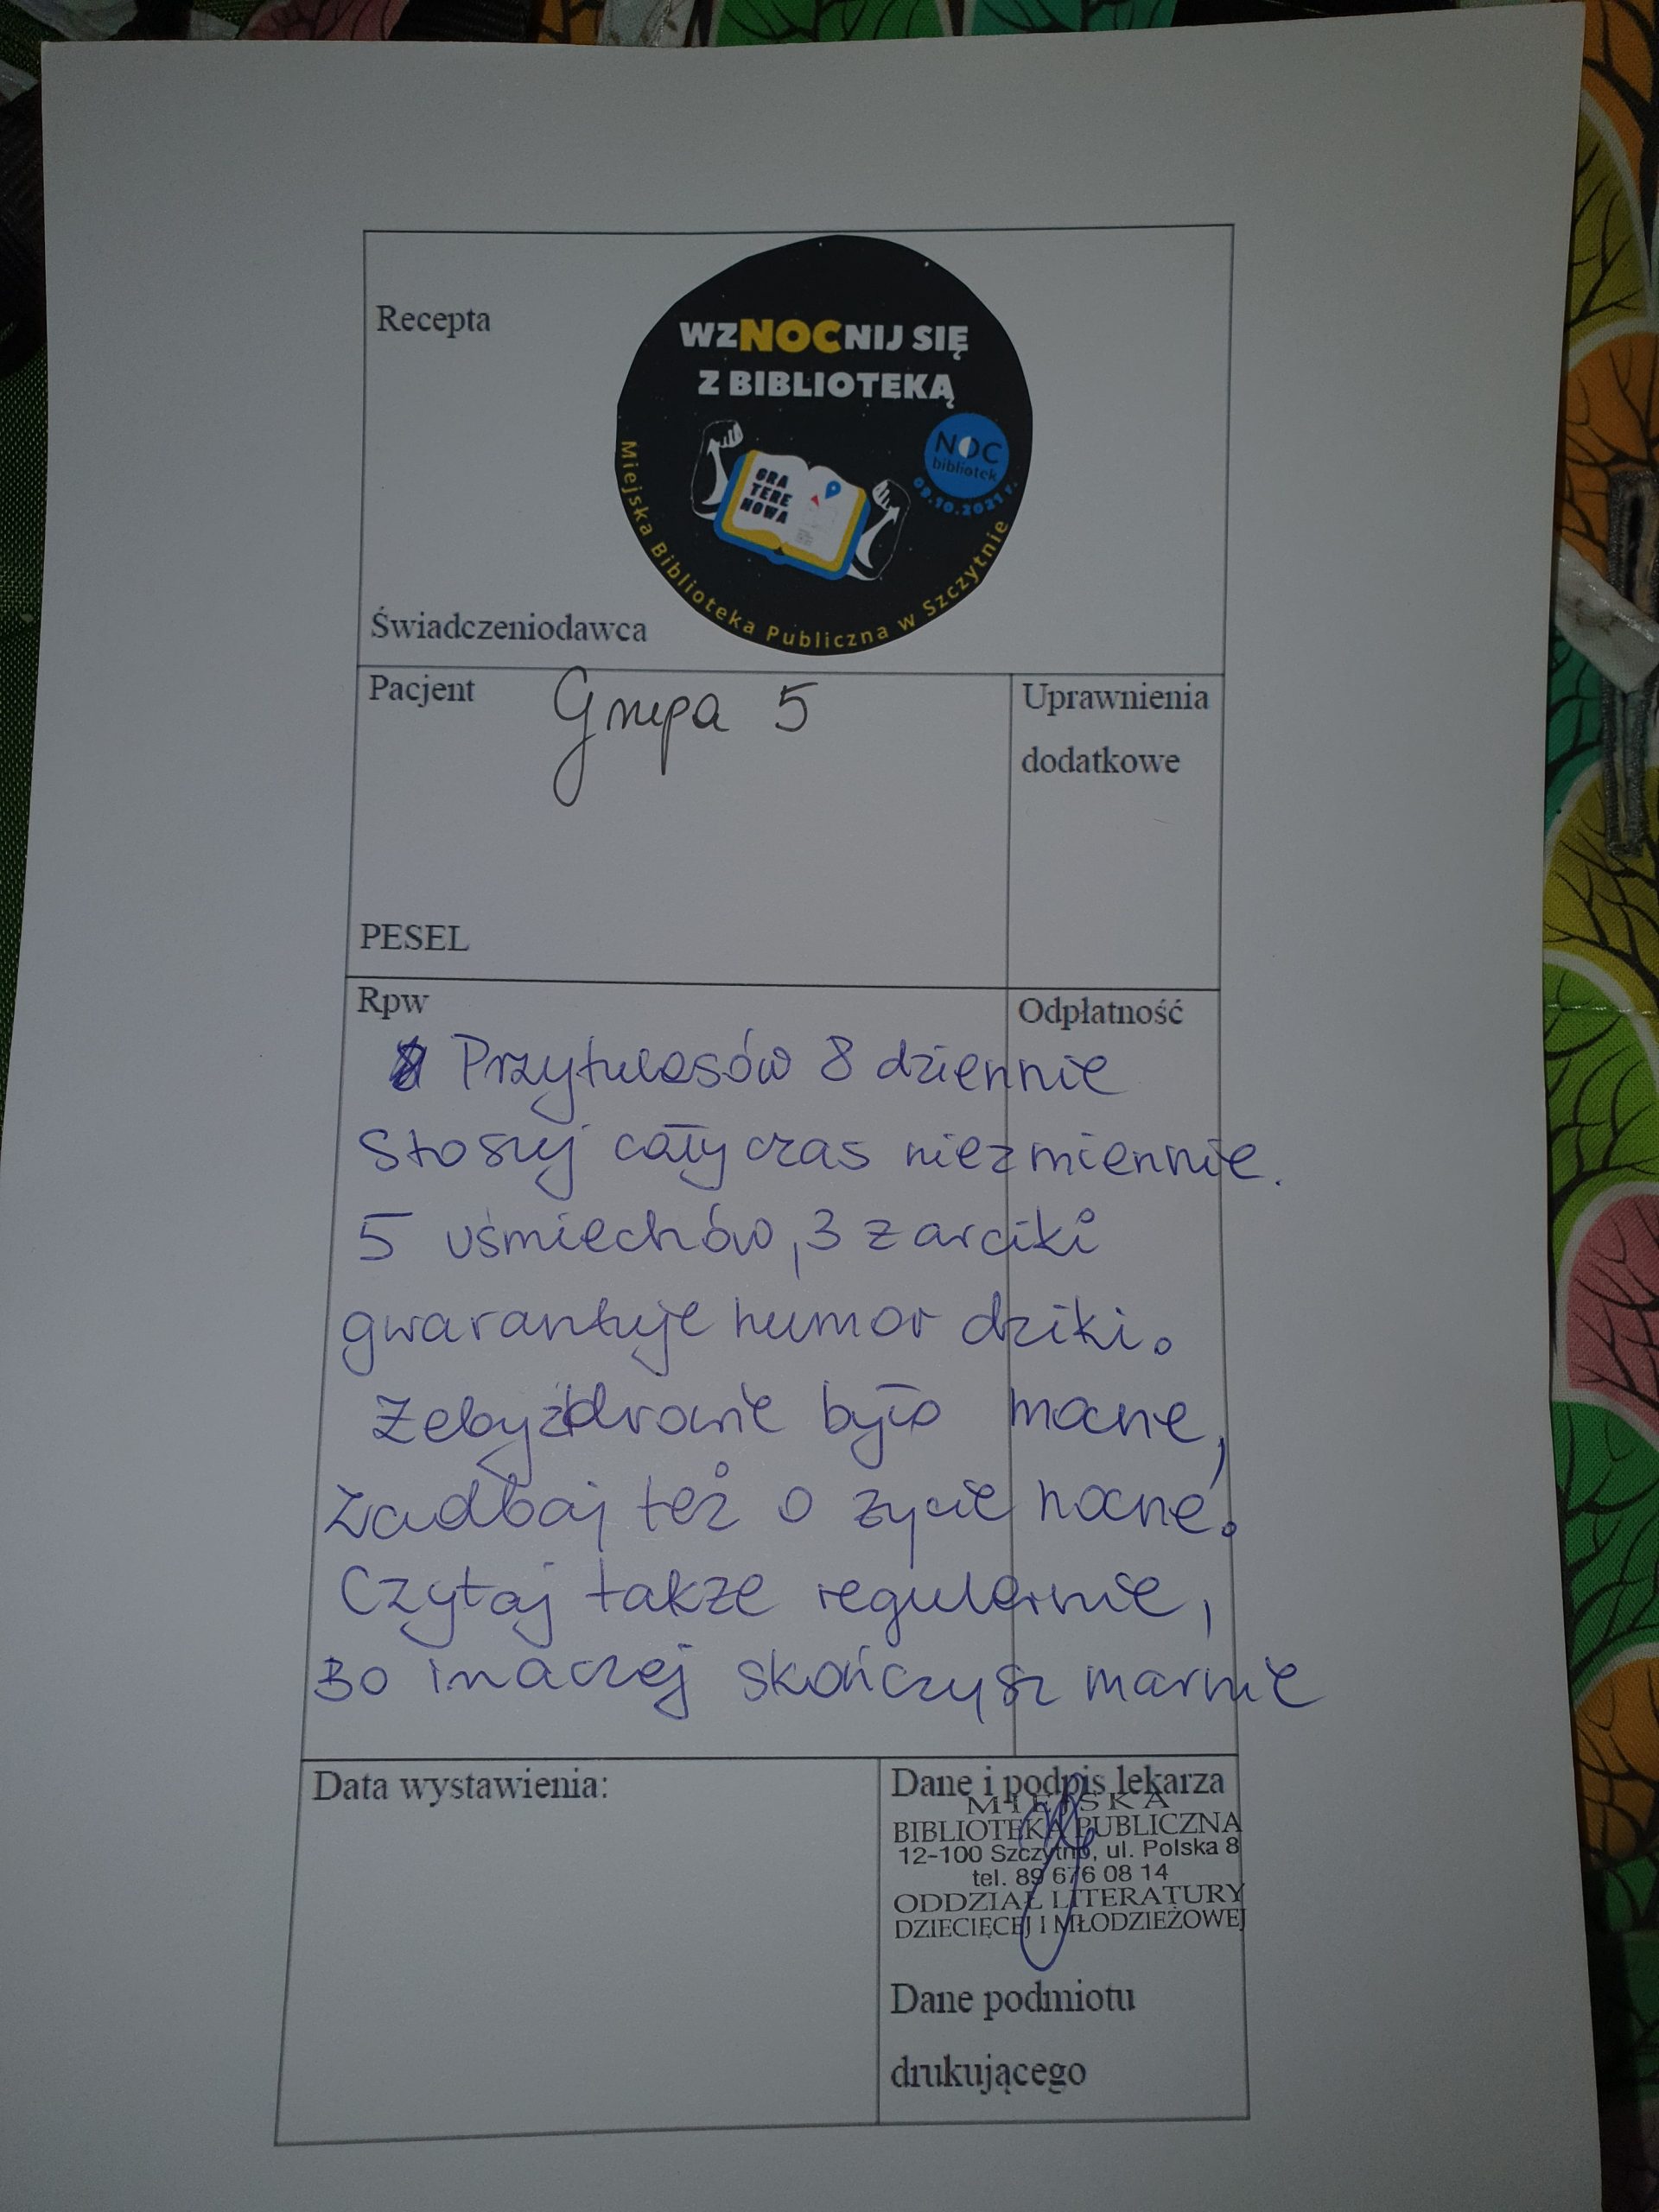 Recepta
WZNOCNIJ SIĘ
Z BIBLIOTEKĄ
NOC
bibliotek
09.10.2021 r.
GRA
TERE
NOWA
Miejska Biblioteka Publiczna w Szczytnie
Świadczeniodawca
Pacjent Grupa 5
Uprawnienia
dodatkowe
PESEL
Rpw
Odpłatność
Przytulasów 8 dziennie
Stosuj cały czas niezmiennie.
5 uśmiechów, 3 żarciki
gwarantuje humor dziki.
Żeby zdrowie było mocne,
Zadbaj też o życie nocne.
Czytaj także regularnie,
Bo inaczej skończysz marnie
Data wystawienia:
Dane i podpis lekarza
MIEJSKA
BIBLIOTEKA PUBLICZNA
12-100 Szczytno, ul. Polska 8
tel. 89 676 08 14
ODDZIAŁ LITERATURY
DZIECIĘCEJ I MŁODZIEŻOWEJ
Dane podmiotu
drukującego